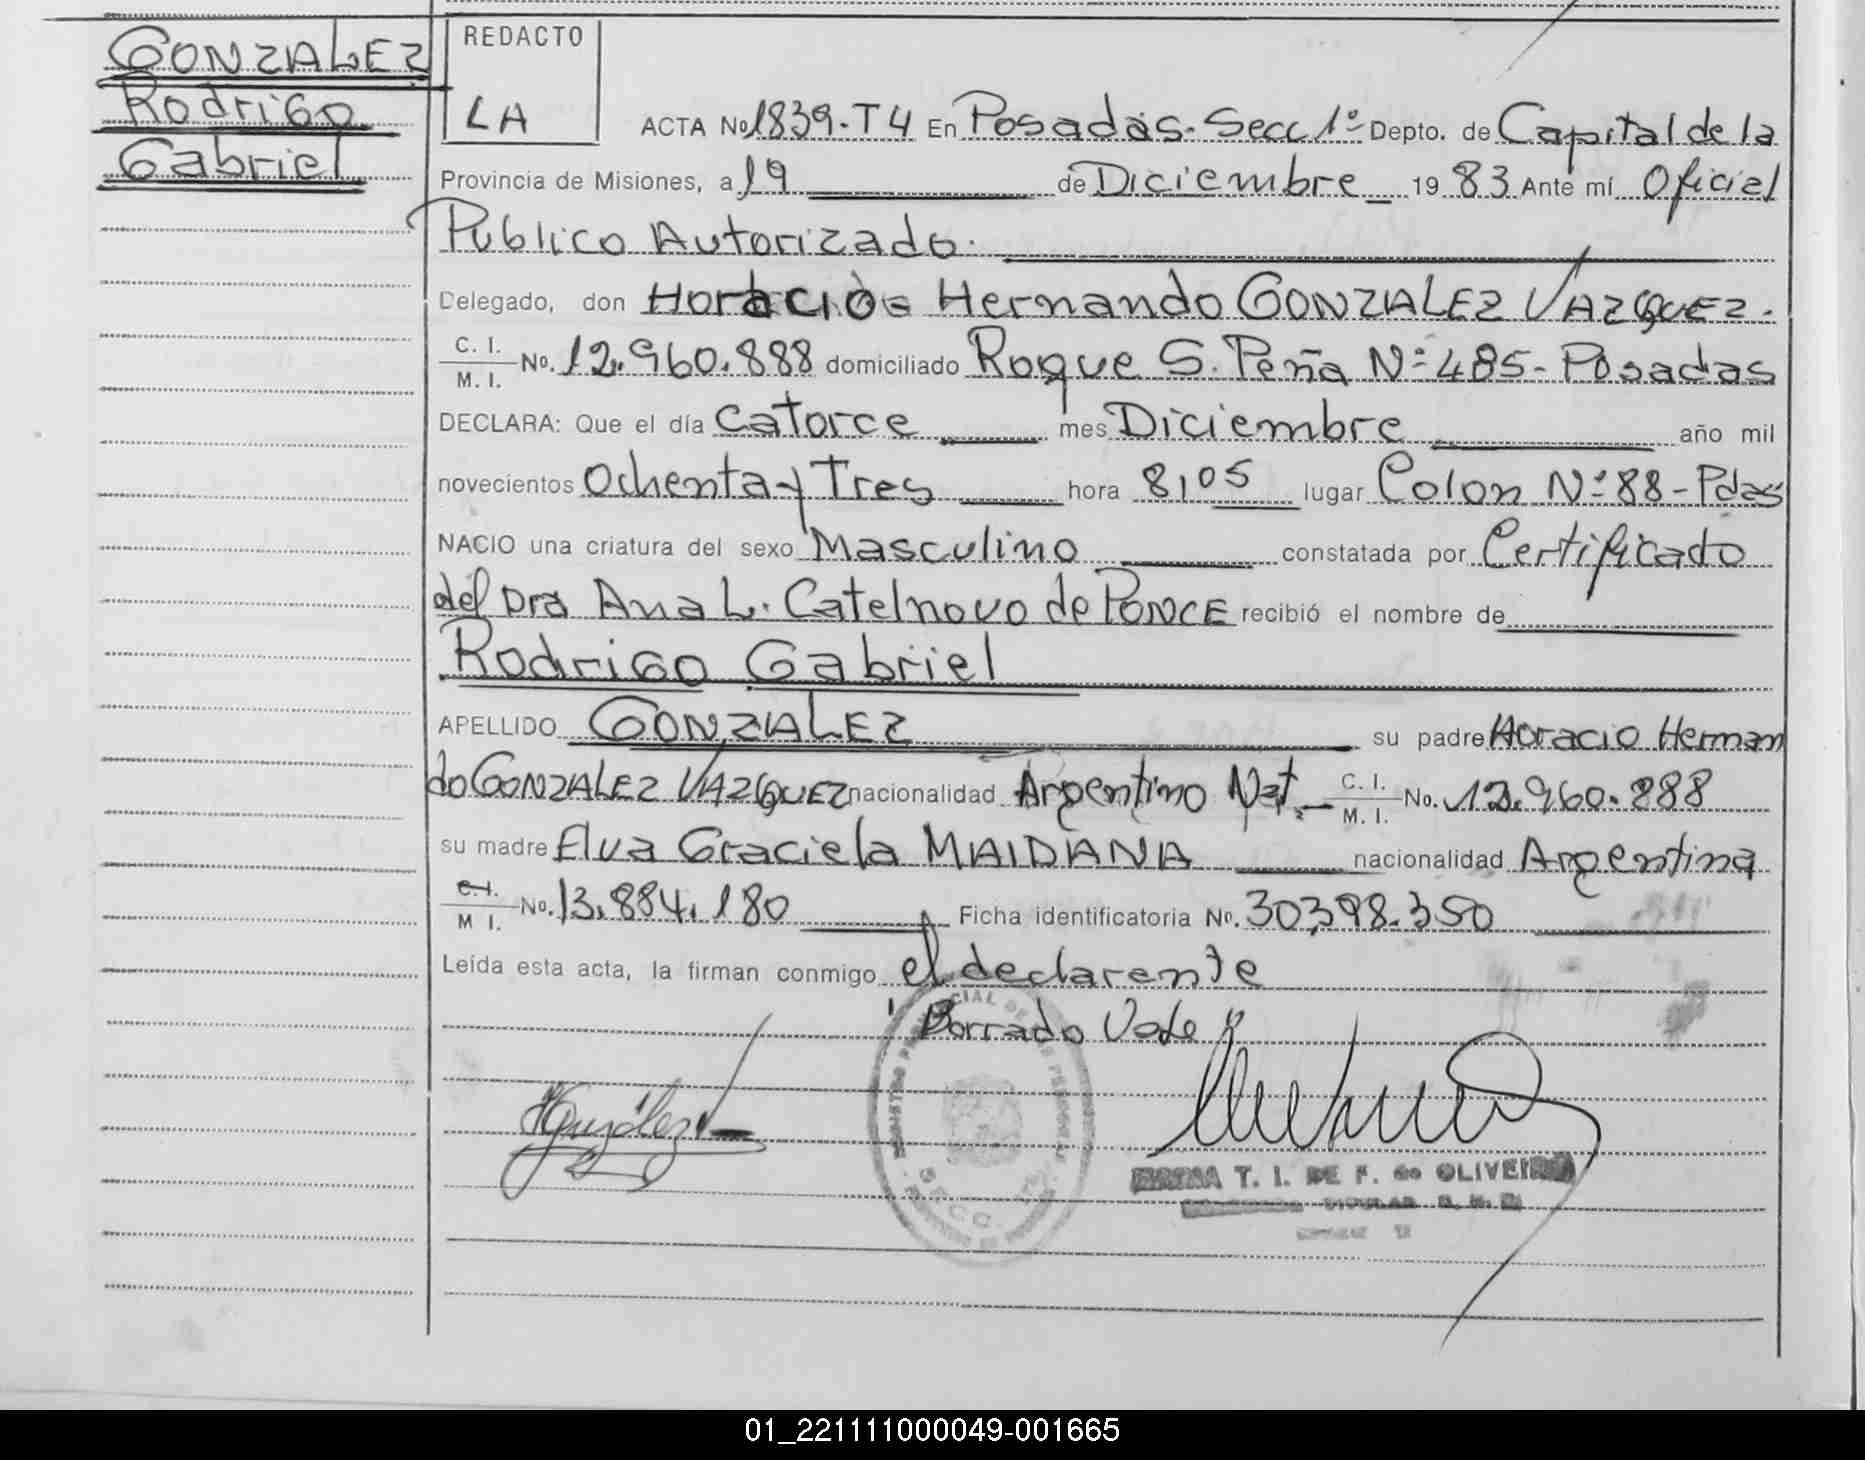 GONZALEZ
Rodrigo
Gabriel
REDACTO
LA
ACTA No 1839-T4 En Posadas-Secc 1º Depto. de Capital de la
Provincia de Misiones, a 19 de Diciembre 19 83 Ante mí Oficial
Publico Autorizado.
Delegado, don Horacio Hernando GONZALEZ VAZQUEZ.
C. I.
M. I. No. 12.960.888 domiciliado Roque S. Peña Nº 485-Posadas
DECLARA: Que el día Catorce mes Diciembre año mil
novecientos Ochenta y Tres hora 8,05 lugar Colon Nº 88-Pdas
NACIO una criatura del sexo Masculino constatada por Certificado
del Dra Ana L. Catelnovo de PONCE recibió el nombre de
Rodrigo Gabriel
APELLIDO GONZALEZ su padre Horacio Hernan
do GONZALEZ VAZQUEZ nacionalidad Argentino Nat. C. I.
M. I. No. 12.960.888
su madre Elva Graciela MAIDANA nacionalidad Argentina
C. I.
M I. No. 13.884.180 Ficha identificatoria No. 30.398.350
Leída esta acta, la firman conmigo el declarente
Borrado Vale
HGonzález
T. I. DE F. de OLIVEIRA
SECC.
01_221111000049-001665